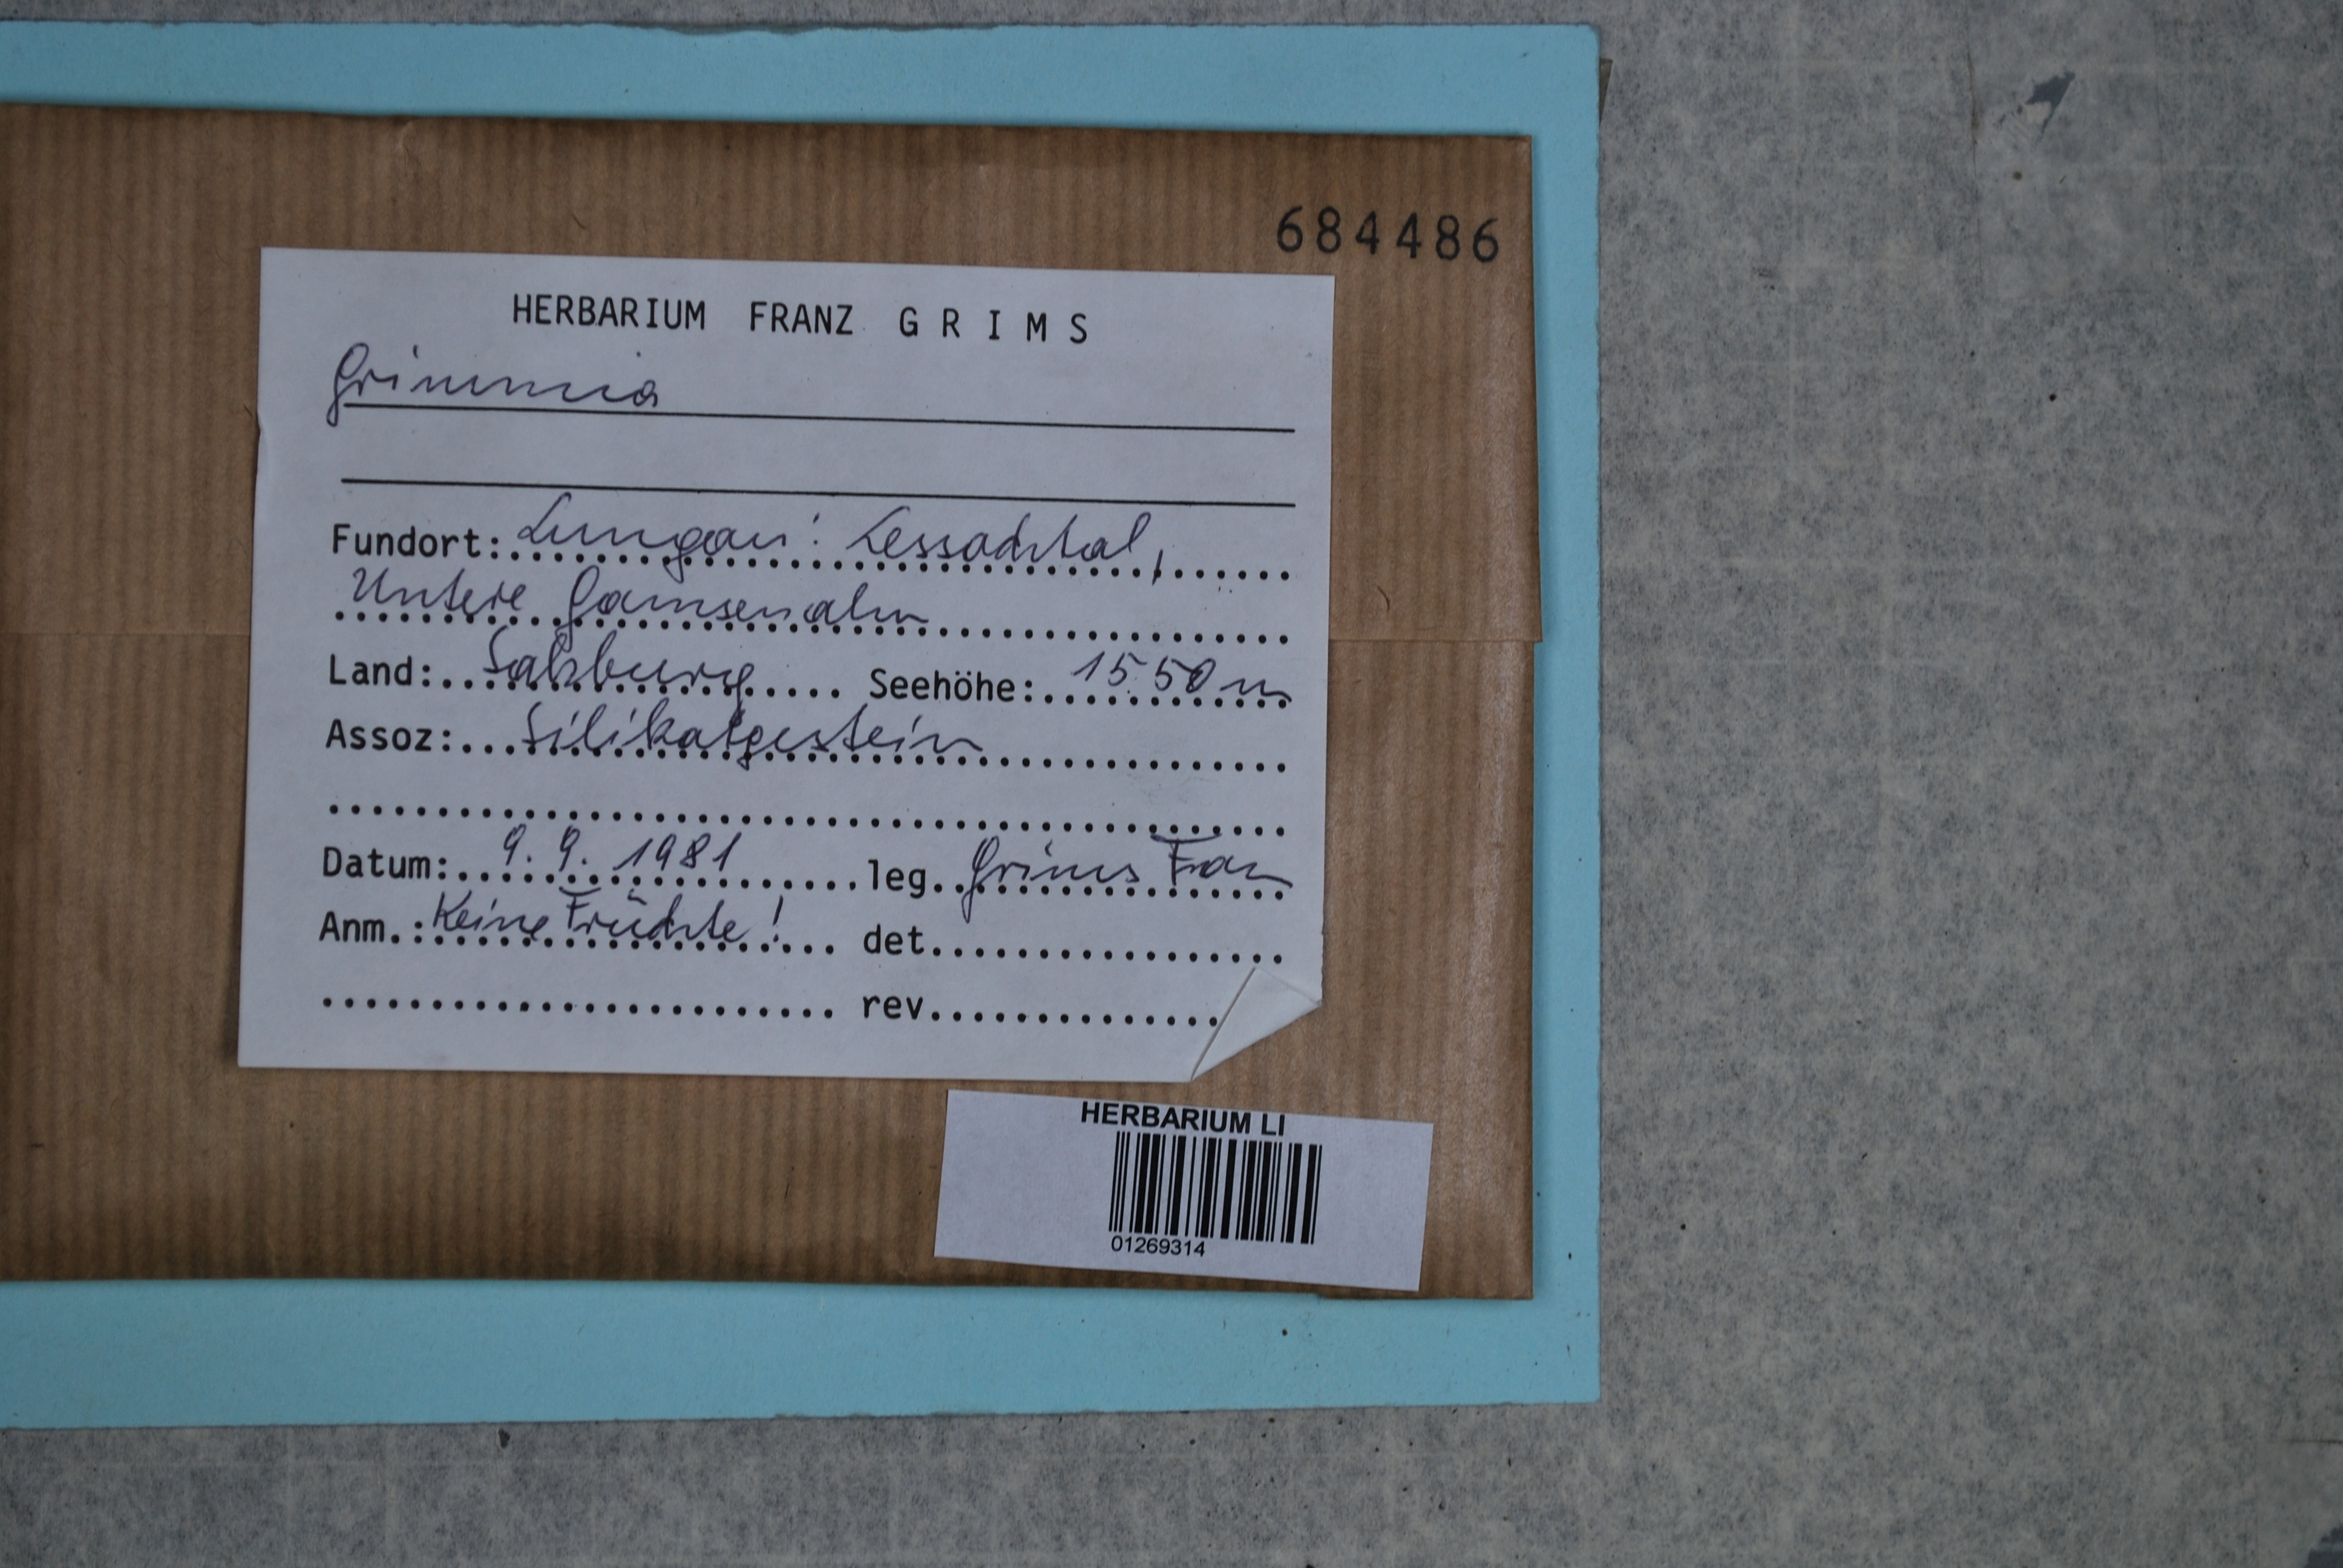 684486
HERBARIUM FRANZ GRIMS
Grimmia
Fundort: Lungau: Lessachtal,
Untere Gamsenalm
Land: Salzburg Seehöhe: 1550 m
Assoz: Silikatgestein
Datum: 9.9.1981 leg. Grims Franz
Anm.: Keine Früchte! det.
rev.
HERBARIUM LI
01269314